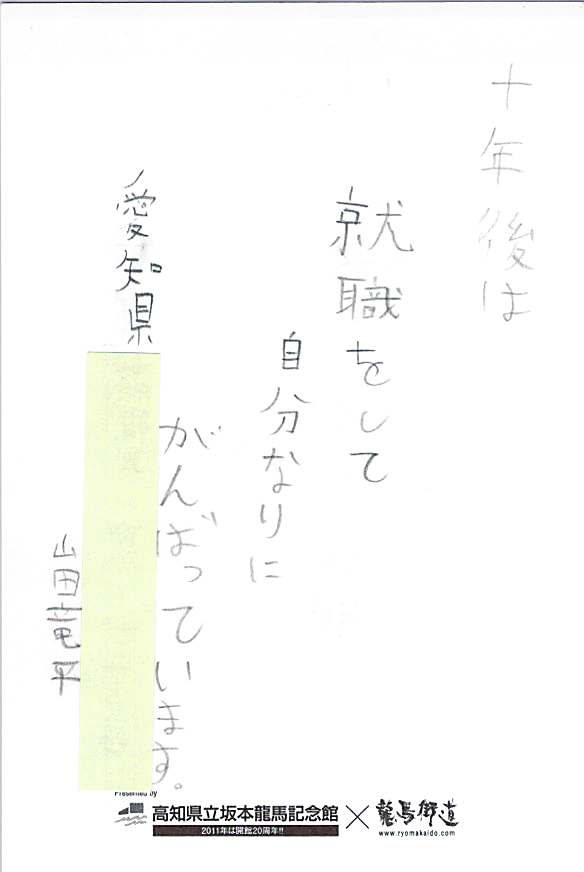 十年後は
就職をして
自分なりに
がんばっています。
愛知県
山田竜平
Presented by
高知県立坂本龍馬記念館
2011年は開館20周年!!
×
龍馬街道
www.ryomakaido.com